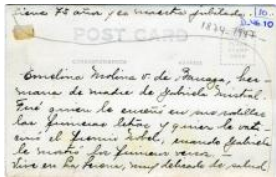 tiene 75 años y es maestra jubilada.
1874-1947
POST CARD
Emelina Molina v. de Barraza, her-
mana de madre de Gabriela Mistral.
Fué quien le enseñó en sus rodillas
las primeras letras y quien le vati-
cinó el Premio Nobel, cuando Gabriela
le mostró los primeros versos —
Vive en La Serena, muy delicada de salud